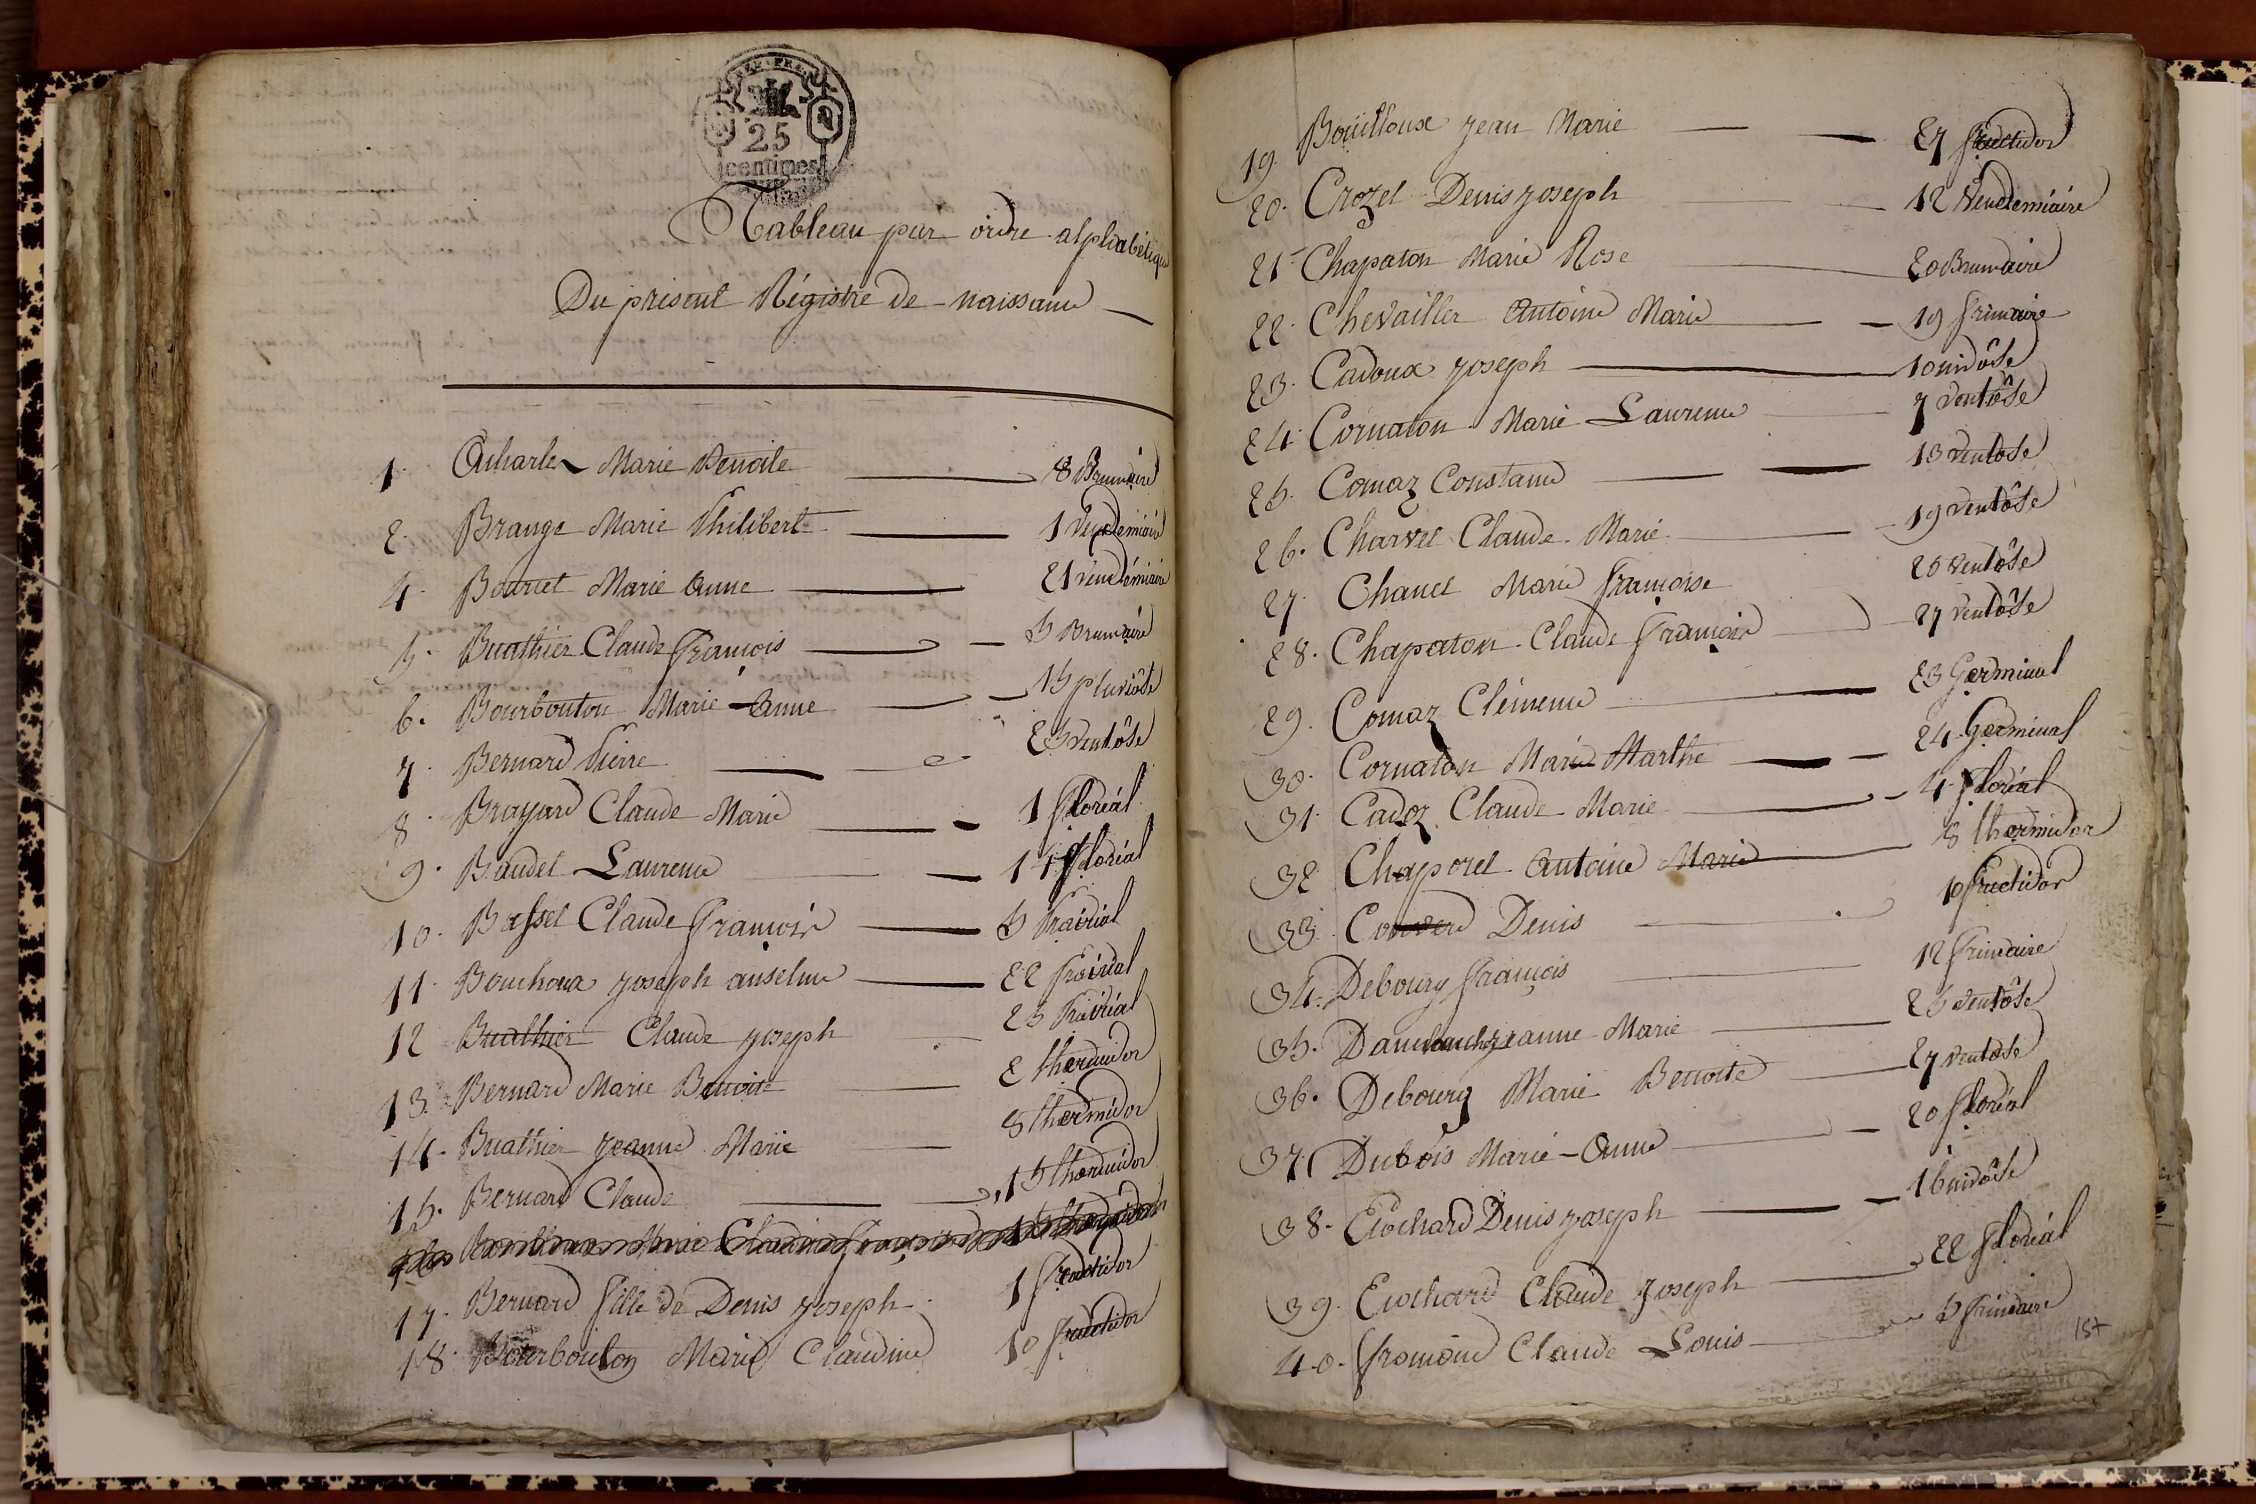 REP. FRA.
25
centimes
Tableau par ordre alphabétique
Du présent Régistre de naissance
1. Acharle Marie Benoite 8 Brumaire
2. Brange Marie Philibert 1 Vendemiaire
4. Bourcet Marie Anne 21 Vendémiaire
5. Buathier Claude François 5 Brumaire
6. Bourbouton Marie Anne 15 pluviôse
7. Bernard Pierre 25 Ventôse
8. Brayard Claude Marie 1 floréal
9. Baudet Laurence 14 floréal
10. Basset Claude François 5 Prairial
11. Bouchoux Joseph anselme 22 Prairial
12 Buathier Claude Joseph 25 Prairial
13. Bernard Marie Benoite 2 thermidor
14. Buathier Jeanne Marie 8 thermidor
15. Bernard Claude 15 thermidor
17. Bernard fille de Denis Joseph 1 fructidor
18. Bourbouton Marie Claudine 10 fructidor
19. Boüilloux Jean Marie 27 fructidor
20. Crozet Denis Joseph 12 Vendemiaire
21. Chapaton Marie Rose 20 Brumaire
22. Chevailler Antoine Marie 19 frimaire
23. Cadoux Joseph 10 nivôse
24. Cornaton Marie Laurence 7 Ventôse
25. Comaz Constance 13 Ventôse
26. Charvet Claude Marie 19 Ventôse
27. Chanel Marie françoise 25 Ventôse
28. Chapaton Claude françois 27 Ventôse
29. Comaz Clémence 23 Germinal
30. Cornaton Marie Marthe 24 Germinal
31. Cadoz Claude Marie 4 floréal
32 Chaporel Antoine Marie 8 thermidor
33. Converd Denis 10 fructidor
34. Debourg françois 12 frimaire
35. Jeanne Marie 25 Ventôse
36. Debourg Marie Benoite 27 Ventôse
37. Dubois Marie-Anne 20 floréal
38. Evochard Denis Joseph 16 nivôse
39. Evochard Claude Joseph 22 floréal
40. fromond Claude Louis 5 frimaire